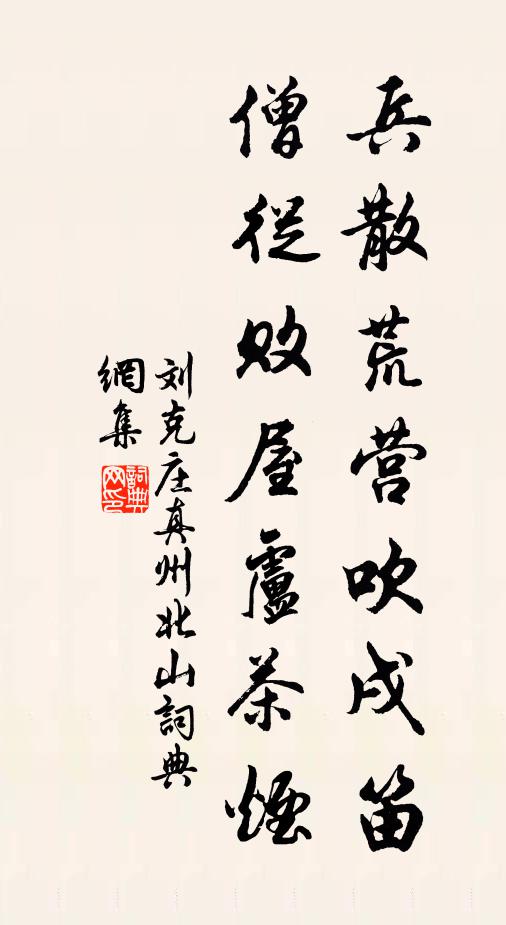 兵散荒营吹戍笛
僧從败屋廬茶煙
刘克庄真州北山詞典
網集
詞典
网印